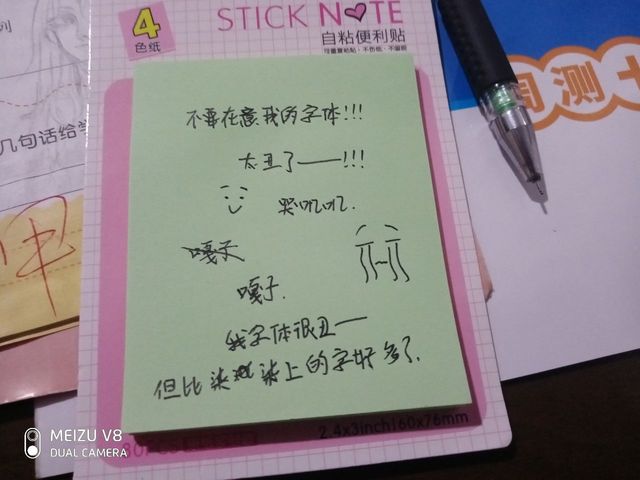 STICK NOTE
4
色纸
自粘便利贴
可重复粘贴·不伤纸·不留痕
列
几句话给学
周测
不要在意我的字体!!!
太丑了——!!!
哭叽叽.
嘎子
嘎子.
我字体很丑——
但比柒染上的字好多了.
2.4x3inch(60x76mm
MEIZU V8
DUAL CAMERA